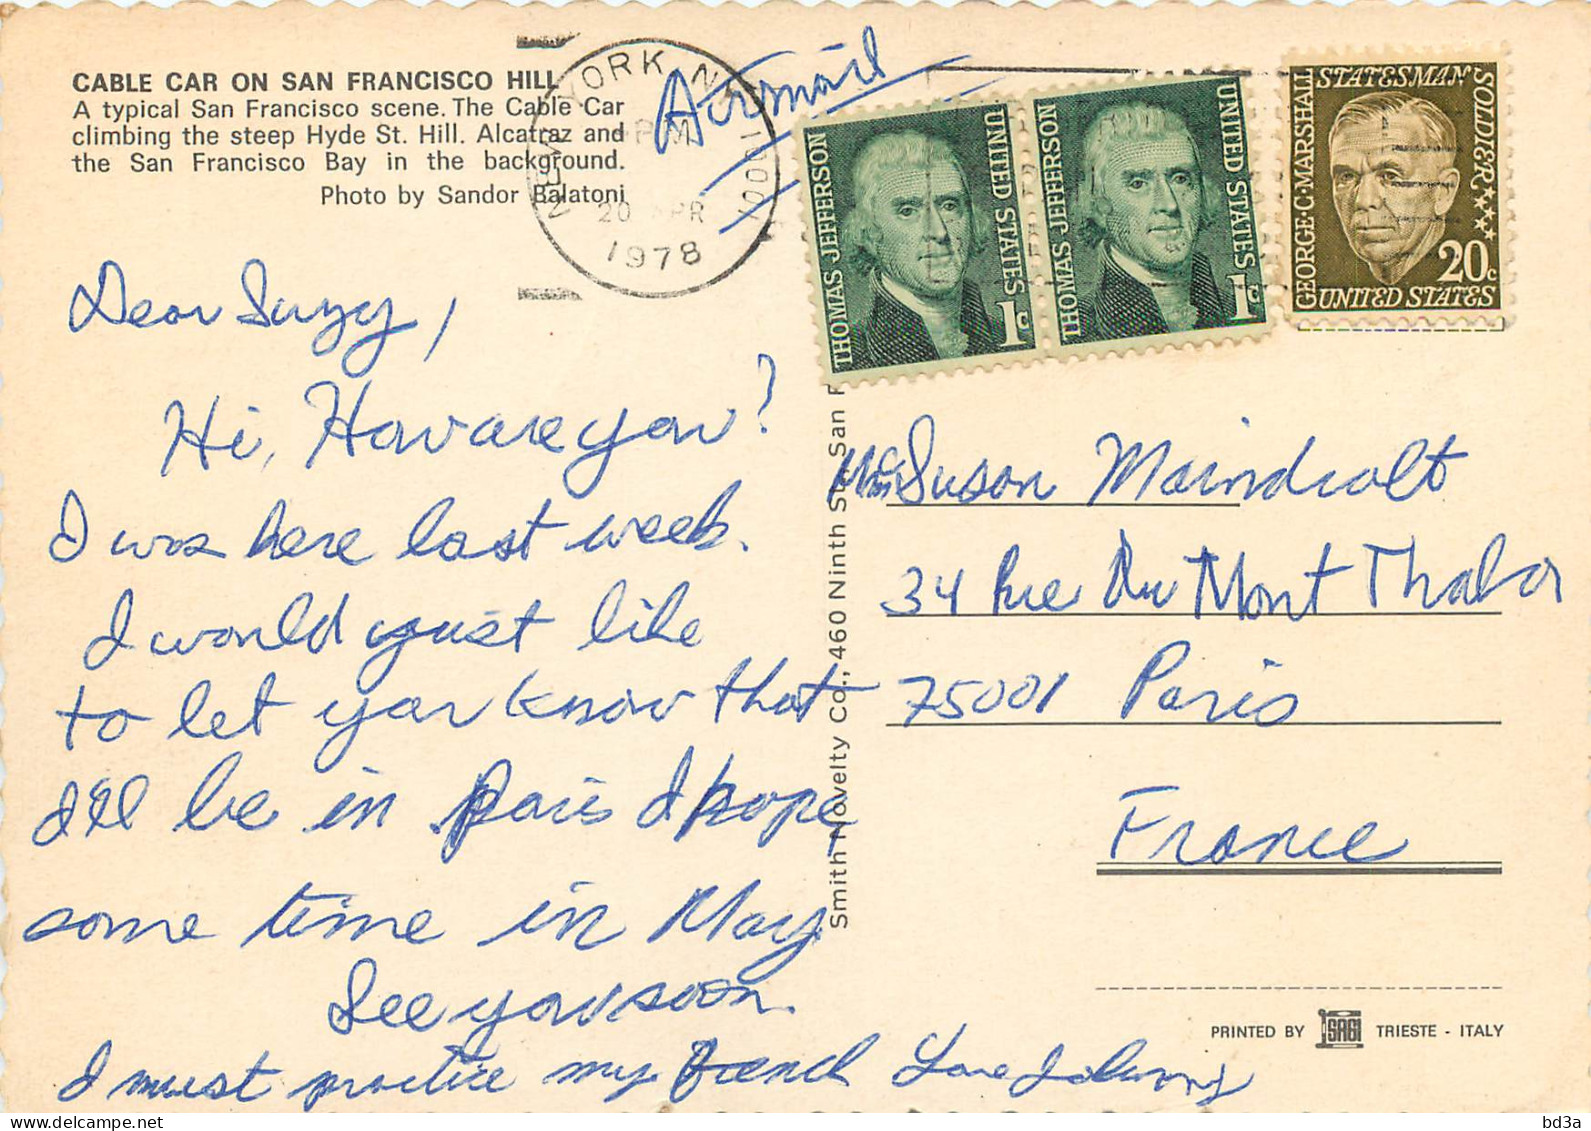 CABLE CAR ON SAN FRANCISCO HILL
A typical San Francisco scene. The Cable Car
climbing the steep Hyde St. Hill. Alcatraz and
the San Francisco Bay in the background.
Photo by Sandor Balatoni
NEW YORK NY 10001
PM
20 APR
1978
Airmail
THOMAS JEFFERSON
UNITED STATES
1c
THOMAS JEFFERSON
UNITED STATES
1c
GEORGE·C·MARSHALL
STATESMAN
SOLDIER
20c
UNITED STATES
Dear Suzy,
Hi, How are you?
I was here last week.
I would just like
to let you know that
I'll be in Paris I hope,
some time in May.
See you soon.
I must practice my French Love Johnny
Smith Novelty Co., 460 Ninth St., San F
Susan Maindrolt
34 Rue Du Mont Thabor
75001 Paris
France
PRINTED BY SAGI TRIESTE - ITALY
bd3a